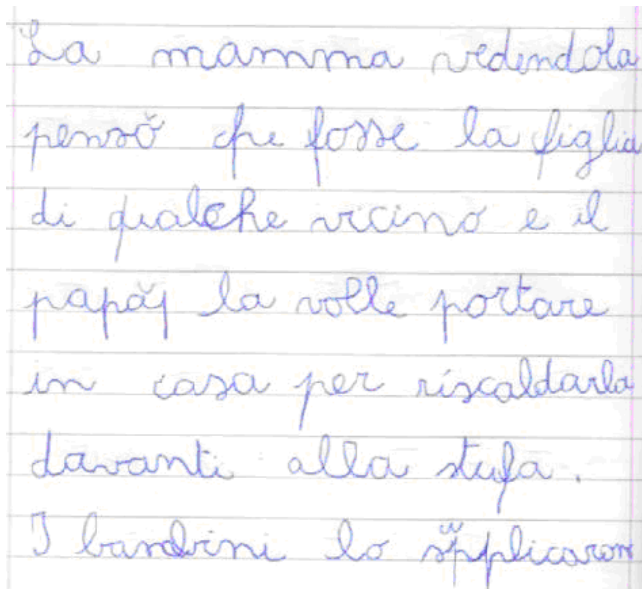 La mamma vedendola
pensò che fosse la figlia
di qualche vicino e il
papà la volle portare
in casa per riscaldarla
davanti alla stufa.
I bambini lo supplicaron